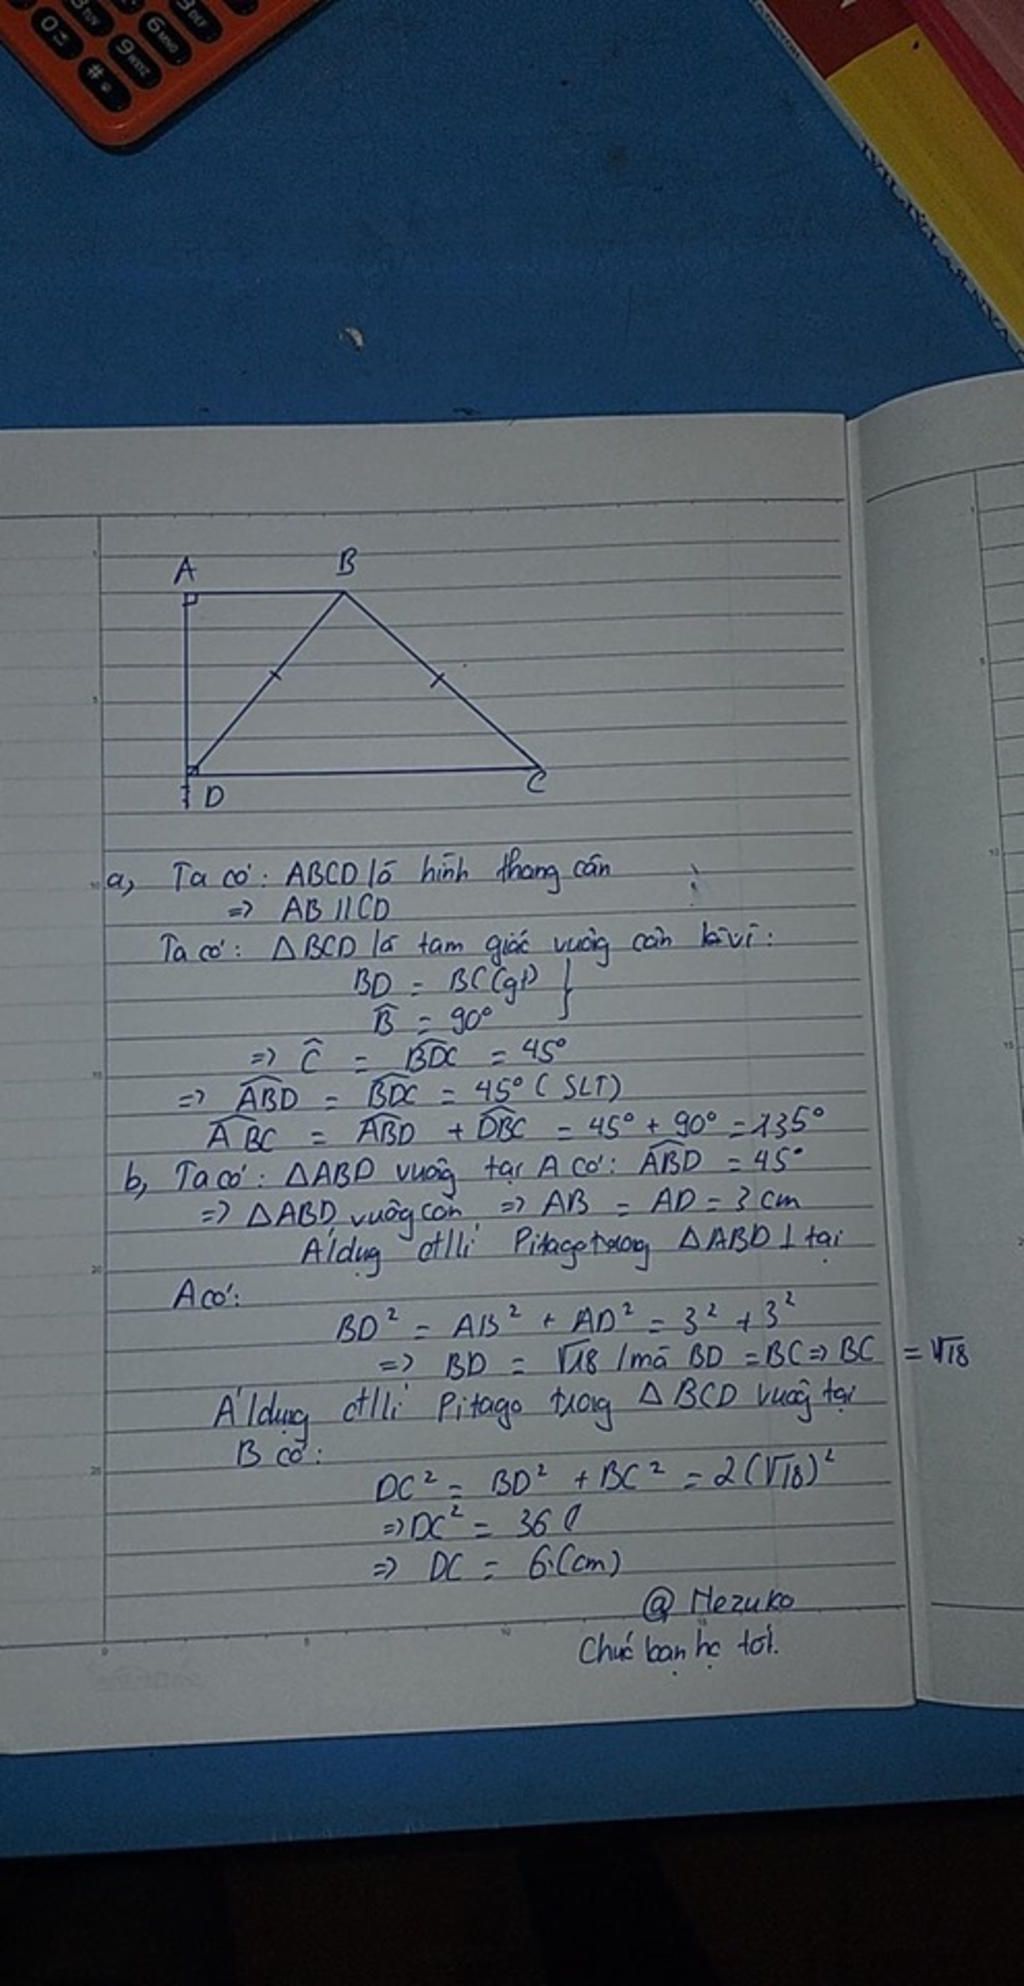 A B
D C
a, Ta có: ABCD là hình thang cân
=> AB // CD
Ta có: △BCD là tam giác vuông cân vì:
BD = BC (gt)
B̂ = 90°
=> Ĉ = BDC = 45°
=> ABD = BDC = 45° (SLT)
ABC = ABD + DBC = 45° + 90° = 135°
b, Ta có: △ABD vuông tại A có: ABD = 45°
=> △ABD vuông cân => AB = AD = 3 cm
Á/dụng đ/lí Pitago trong △ABD ⊥ tại
A có:
BD² = AB² + AD² = 3² + 3²
=> BD = √18 / mà BD = BC => BC = √18
Á/dụng đ/lí Pitago trong △BCD vuông tại
B có:
DC² = BD² + BC² = 2(√18)²
=> DC² = 36
=> DC = 6 (cm)
@ Nezuko
Chúc bạn hc tốt.